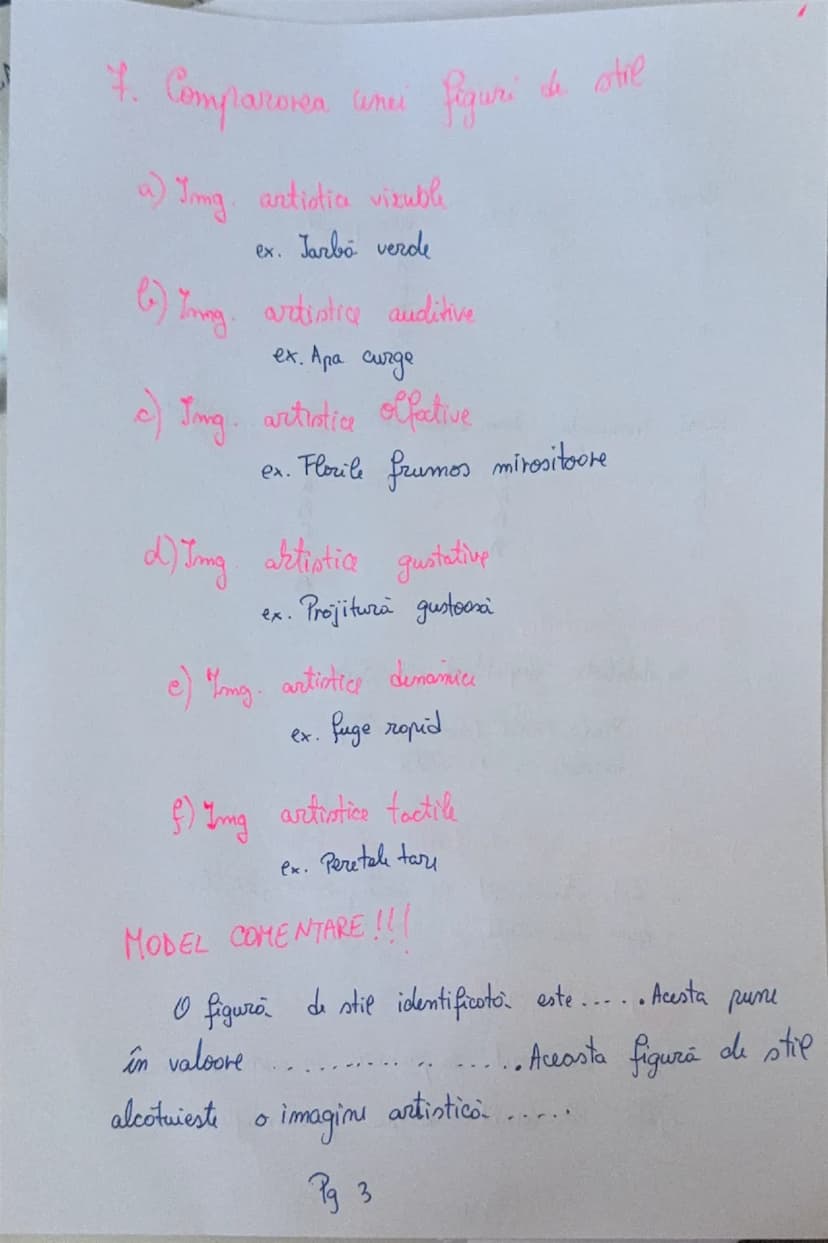 7. Compararea unei figuri de stil
a) Img. artistice vizuble
ex. Iarbă verde
b) Img. artistice auditive
ex. Apa curge
c) Img. artistice olfative
ex. Florile frumos mirositoare
d) Img artistice gustative
ex. Prăjitură gustoasă
e) Img. artistice dinamice
ex. fuge rapid
f) Img artistice tactile
ex. Peretele tare
MODEL COMENTARE!!!
O figură de stil identificată este...... Acesta pune
în valoare ................. Aceasta figură de stil
alcătuieste o imagine artistică.....
Pg 3